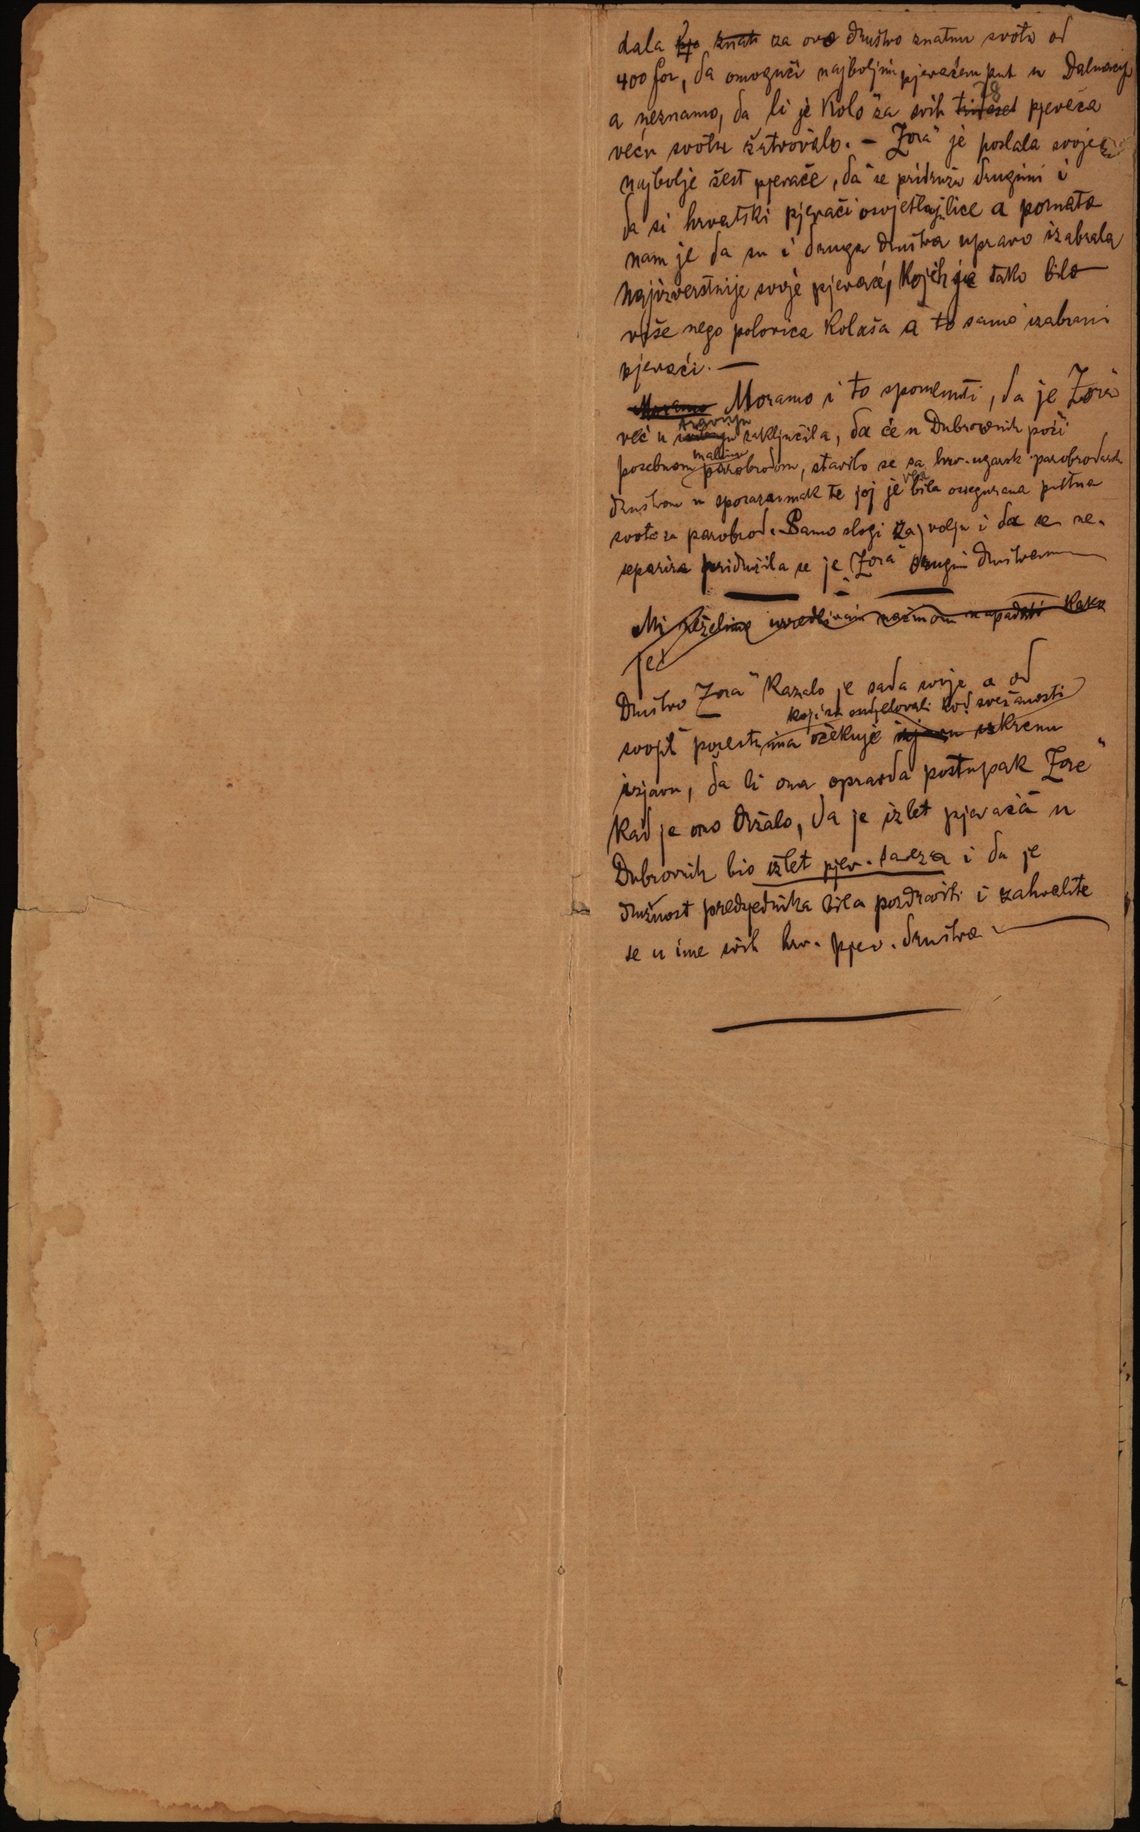 dala za ovo društvo znatnu svotu od
400 for, da omogući najboljim pjevačem put u Dalmaciju
a neznamo, da li je Kolo" za svih trideset 28 pjevača
veću svotu žrtvovalo. – Zora" je poslala svoje
najbolje šest pjevače, da se pridruže drugimi i
da si hrvatski pjevači osvjetlaju lice a poznato
nam je da su i druga društva upravo izabrala
najizverstnije svoje pjevače, kojih je tako bilo
više nego polovica Kolaša a to samo izabrani
pjevači. —
Moramo Moramo i to spomenuti, da je Zora"
već u travnju zaključila, da će u Dubrovnik poći
posebnom malim parobrodom, stavilo se sa hrv. ugarsk. parobrodarsk
društvom u sporazumak te joj je već bila osegurana putna
svota za parobrod. Samo slogi za volju i da se ne
separira pridružila se je „Zora" drugim društvom
Mi neželimo uvredljivim načinom napadati kako
jed
Društvo Zora" kazalo je sada svoje a od
koji su sudjelovali kod svečanosti
svojih očekuje izjavu iskrenu
izjavu, da li ona opravda postupak Zore"
kad je ono držalo, da je izlet pjevača u
Dubrovnik bio izlet pjev. saveza i da je
dužnost predsjednika bila pozdraviti i zahvalite
se u ime svih hrv. pjev. društva